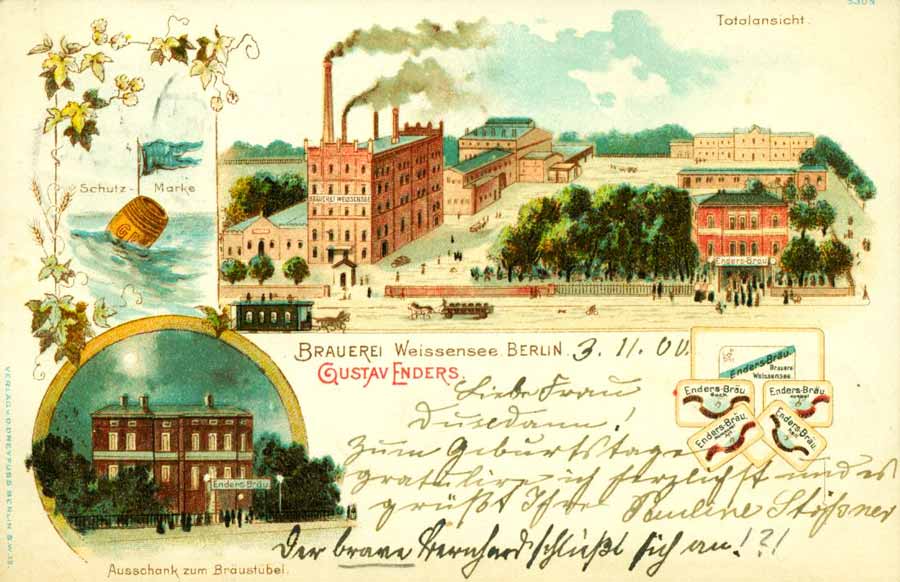 5305
Totalansicht.
Schutz- Marke
G
BRAUEREI WEISSENSEE
Enders-Bräu
BRAUEREI Weissensee. BERLIN.
GUSTAV ENDERS.
3. 11. 00.
Enders-Bräu.
Brauerei
Weissensee.
Enders-Bräu
Enders-Bräu
Enders-Bräu.
Enders-Bräu
Liebe Frau
Zum Geburtstage
gratulire ich herzlichst und es
grüßt Ihre Pauline Stößner
Der brave Bernhard schließt sich an! ?!
Enders-Bräu
Ausschank zum Bräustübel.
VERLAG v. O. DREYFUSS BERLIN S.W. 13.